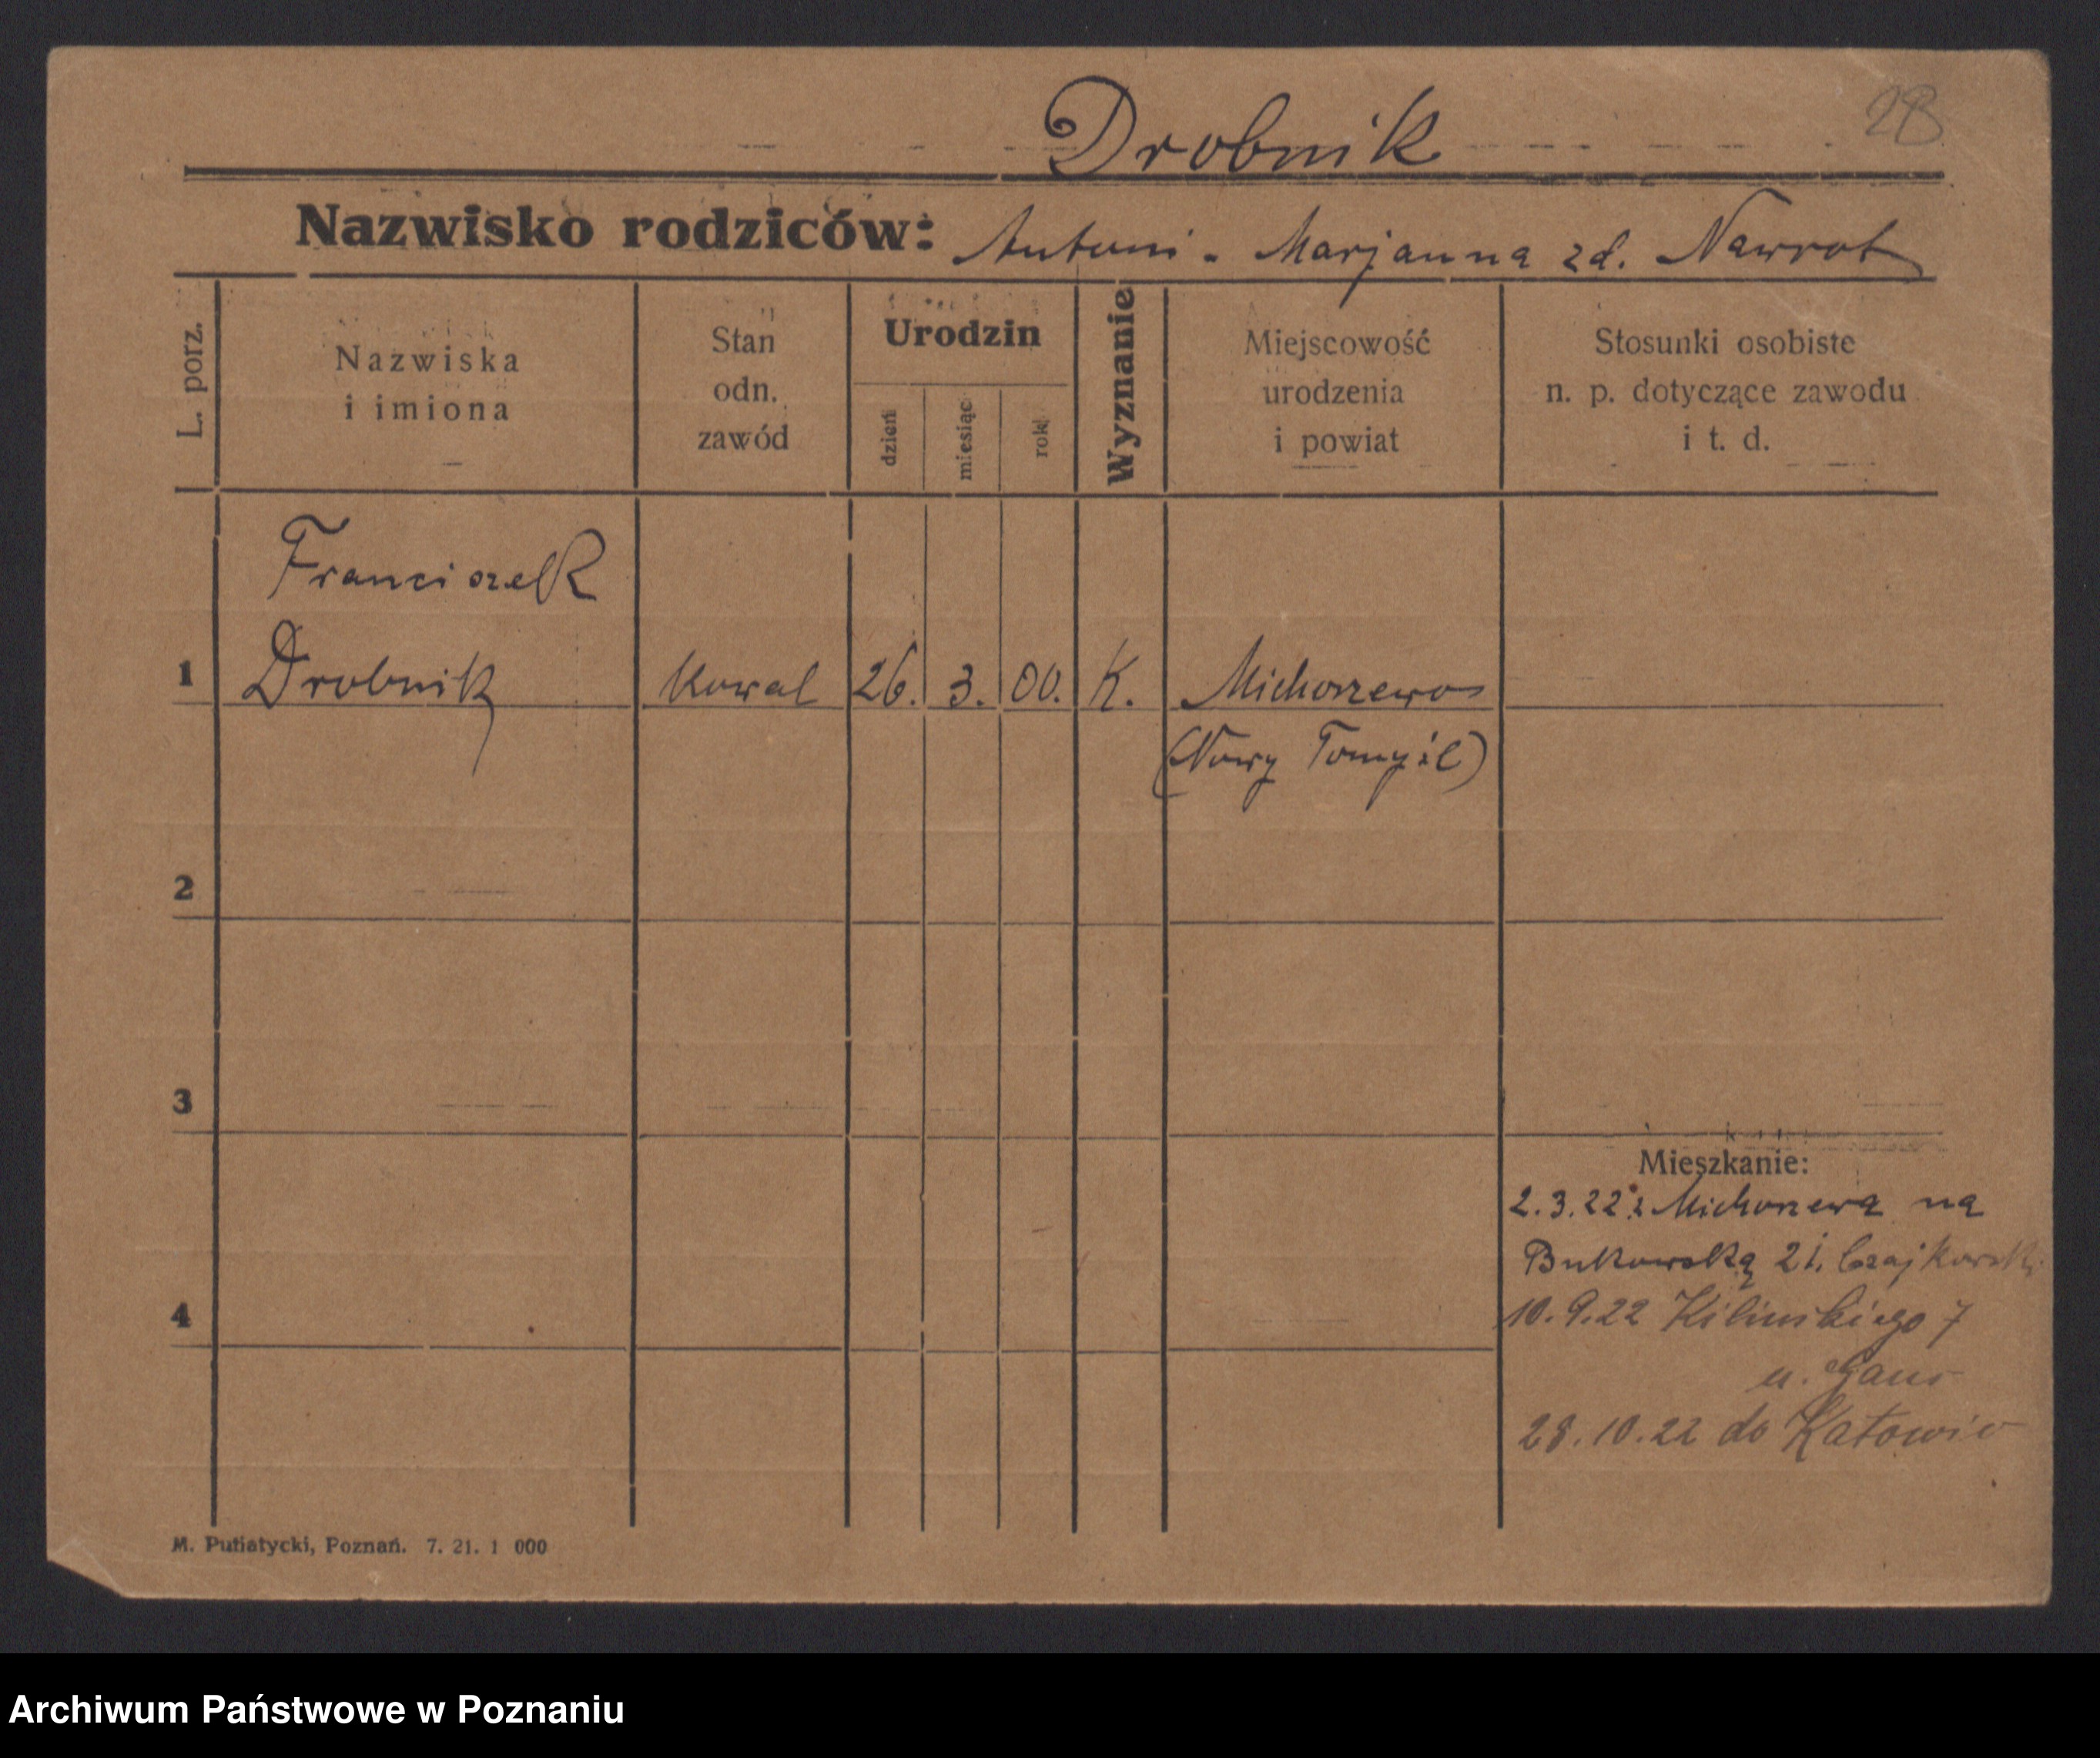 Drobnik
28
Nazwisko rodziców: Antoni - Marjanna zd. Nawrot
L. porz.
Nazwiska
i imiona
Stan
odn.
zawód
Urodzin
dzień
miesiąc
rok
Wyznanie
Miejscowość
urodzenia
i powiat
Stosunki osobiste
n. p. dotyczące zawodu
i t. d.
Franciszek
1 Drobnik Kowal 26. 3. 00. K. Michorzewo
(Nowy Tomyśl)
2
3
Mieszkanie:
2.3.22 z Michorzewa na
Bukowską 21. Czajkowski
4
10.9.22 Kilińskiego 7
u.
28.10.22 do Katowic
M. Putiatycki, Poznań. 7. 21. 1 000
Archiwum Państwowe w Poznaniu